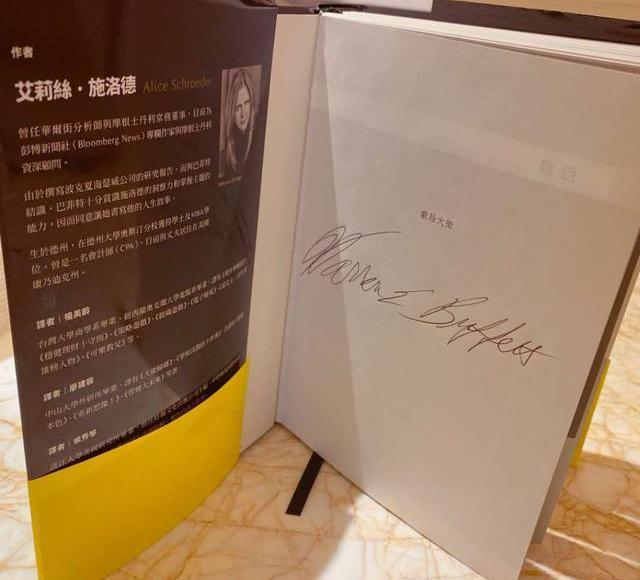 作者
艾莉絲・施洛德 Alice Schroeder
曾任華爾街分析師與摩根士丹利常務董事,目前為
彭博新聞社(Bloomberg News)專欄作家與摩根士丹利
資深顧問。
由於撰寫波克夏海瑟威公司的研究報告,而與巴菲特
結識。巴菲特十分賞識施洛德的洞察力和掌握主題的
能力,因而同意讓她書寫他的人生故事。
生於德州,在德州大學奧斯汀分校獲得學士及MBA學
位。曾是一名會計師(CPA),目前與丈夫居住在美國
康乃迪克州。
譯者|楊美齡
台灣大學商學系畢業、紐西蘭奧克蘭大學電腦系畢業。
譯者|廖建容
中山大學外研所畢業。
譯者|侯秀琴
淡江大學美國研究所畢業。
目錄
Warren E Buffett